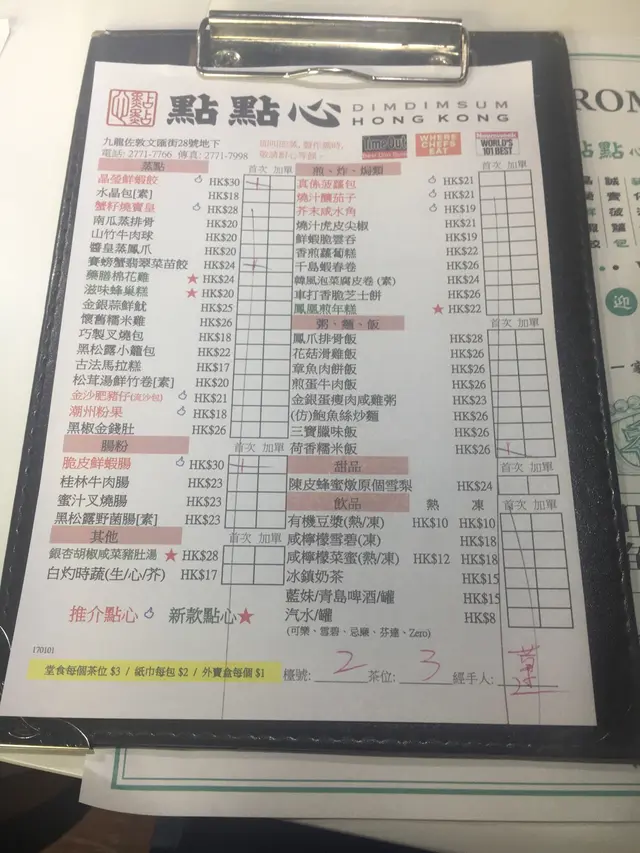 點點心 DIMDIMSUM HONG KONG
九龍佐敦文匯街28號地下
電話: 2771-7766 傳真: 2771-7998
TimeOut
WHERE CHEFS EAT
Newsweek's WORLD'S 101 BEST
蒸點 首次 加單
晶瑩鮮蝦餃 HK$30
水晶包[素] HK$18
蟹籽燒賣皇 HK$28
南瓜蒸排骨 HK$20
山竹牛肉球 HK$20
醬皇蒸鳳爪 HK$20
賽螃蟹翡翠菜苗餃 HK$24
藥膳棉花雞 ★ HK$24
滋味蜂巢糕 ★ HK$20
金銀蒜鮮魷 HK$25
懷舊糯米雞 HK$26
巧製叉燒包 HK$18
黑松露小籠包 HK$22
古法馬拉糕 HK$17
松茸湯鮮竹卷[素] HK$20
金沙肥豬仔(流沙包) HK$21
潮州粉果 HK$18
黑椒金錢肚 HK$26
腸粉 首次 加單
脆皮鮮蝦腸 HK$30
桂林牛肉腸 HK$23
蜜汁叉燒腸 HK$23
黑松露野菌腸[素] HK$23
其他 首次 加單
銀杏胡椒咸菜豬肚湯 ★ HK$28
白灼時蔬(生/心/芥) HK$17
推介點心 新款點心★
170101
堂食每個茶位 $3 / 紙巾每包 $2 / 外賣盒每個 $1
煎、炸、焗類 首次 加單
真係菠蘿包 HK$21
燒汁釀茄子 HK$21
芥末咸水角 HK$19
燒汁虎皮尖椒 HK$21
鮮蝦脆雲吞 HK$19
香煎蘿蔔糕 HK$22
千島蝦春卷 HK$26
韓風泡菜腐皮卷 (素) HK$24
車打香脆芝士餅 HK$26
鳳凰煎年糕 ★ HK$22
粥、麵、飯 首次 加單
鳳爪排骨飯 HK$28
花菇滑雞飯 HK$26
章魚肉餅飯 HK$26
煎蛋牛肉飯 HK$26
金銀蛋瘦肉咸雞粥 HK$23
(仿)鮑魚絲炒麵 HK$26
三寶臘味飯 HK$26
荷香糯米飯 HK$26
甜品 首次 加單
陳皮蜂蜜燉原個雪梨 HK$24
飲品 熱 凍 首次 加單
有機豆漿(熱/凍) HK$10 HK$10
咸檸檬雪碧(凍) HK$18
咸檸檬菜蜜(熱/凍) HK$12 HK$18
冰鎮奶茶 HK$15
藍妹/青島啤酒/罐 HK$15
汽水/罐 HK$8
(可樂、雪碧、忌廉、芬達、Zero)
檯號: 2 茶位: 3 經手人:
迎